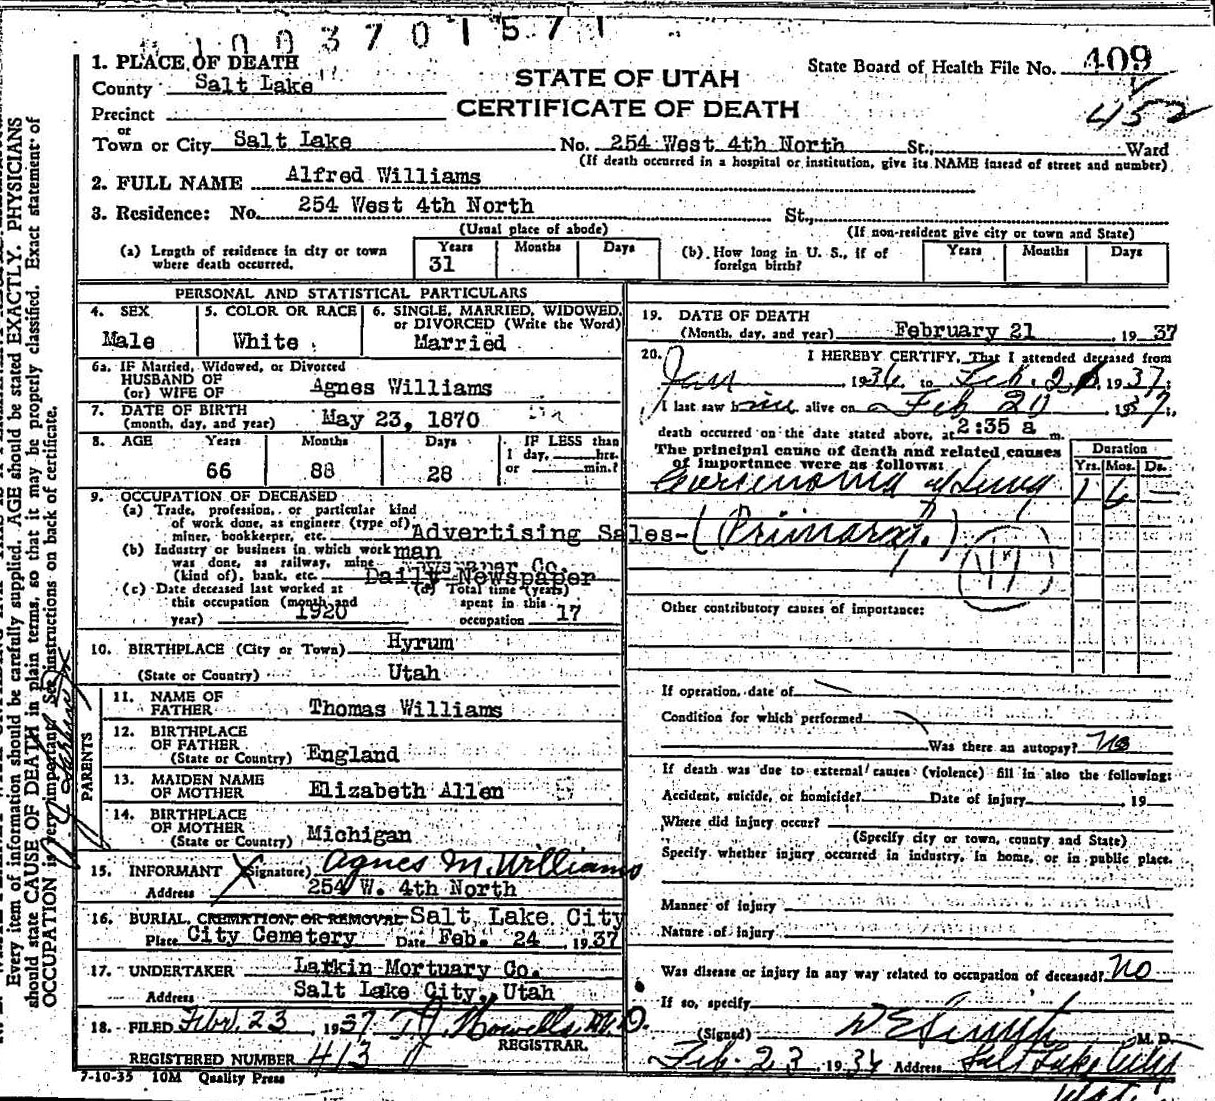 1003701571
1. PLACE OF DEATH
County Salt Lake
Precinct
or
Town or City Salt Lake No. 254 West 4th North St., Ward
(If death occurred in a hospital or institution, give its NAME insead of street and number)
STATE OF UTAH
CERTIFICATE OF DEATH
State Board of Health File No. 409
452
2. FULL NAME Alfred Williams
3. Residence: No. 254 West 4th North St.,
(Usual place of abode) (If non-resident give city or town and State)
(a) Length of residence in city or town where death occurred. Years 31 Months Days
(b) How long in U. S., if of foreign birth? Years Months Days
PERSONAL AND STATISTICAL PARTICULARS
4. SEX Male
5. COLOR OR RACE White
6. SINGLE, MARRIED, WIDOWED, or DIVORCED (Write the Word) Married
6a. IF Married, Widowed, or Divorced
HUSBAND OF
(or) WIFE OF Agnes Williams
7. DATE OF BIRTH
(month, day, and year) May 23, 1870
8. AGE Years 66 Months 88 Days 28
IF LESS than
1 day, hrs.
or min.?
9. OCCUPATION OF DECEASED
(a) Trade, profession, or particular kind
of work done, as engineer (type of)
miner, bookkeeper, etc. Advertising Sales-
(b) Industry or business in which work man
was done, as railway, mine
(kind of), bank, etc. Daily Newspaper
Newspaper Co.
(c) Date deceased last worked at
this occupation (month and
year) 1920
(d) Total time (years)
spent in this
occupation 17
10. BIRTHPLACE (City or Town) Hyrum
(State or Country) Utah
PARENTS
11. NAME OF
FATHER Thomas Williams
12. BIRTHPLACE
OF FATHER
(State or Country) England
13. MAIDEN NAME
OF MOTHER Elizabeth Allen
14. BIRTHPLACE
OF MOTHER
(State or Country) Michigan
15. INFORMANT X (Signature) Agnes M. Williams
Address 254 W. 4th North
16. BURIAL, CREMATION, OR REMOVAL Salt Lake City
Place City Cemetery Date Feb. 24, 1937
17. UNDERTAKER Larkin Mortuary Co.
Address Salt Lake City, Utah
18. FILED Feb. 23, 1937 T J Howells, M.D.
REGISTRAR.
REGISTERED NUMBER 413
7-10-35 10M Quality Press
19. DATE OF DEATH
(Month, day, and year) February 21 1937
20. I HEREBY CERTIFY, That I attended deceased from
Jan 1936, to Feb. 21, 1937;
I last saw him alive on Feb 20, 1937;
death occurred on the date stated above, at 2:35 a m.
The principal cause of death and related causes
of importance were as follows:
Duration
Yrs. Mos. Ds.
Carcinoma of Lung 1 6 —
(Primary.)
47
Other contributory causes of importance:
If operation, date of
Condition for which performed
Was there an autopsy? No
If death was due to external causes (violence) fill in also the following:
Accident, suicide, or homicide? Date of injury 19
Where did injury occur?
(Specify city or town, county and State)
Specify whether injury occurred in industry, in home, or in public place.
Manner of injury
Nature of injury
Was disease or injury in any way related to occupation of deceased? No
If so, specify
(Signed) M. D.
Feb. 23, 1936 Address Salt Lake City
Every item of information should be carefully supplied. AGE should be stated EXACTLY. PHYSICIANS
should state CAUSE OF DEATH in plain terms, so that it may be properly classified. Exact statement of
OCCUPATION is very important. See instructions on back of certificate.